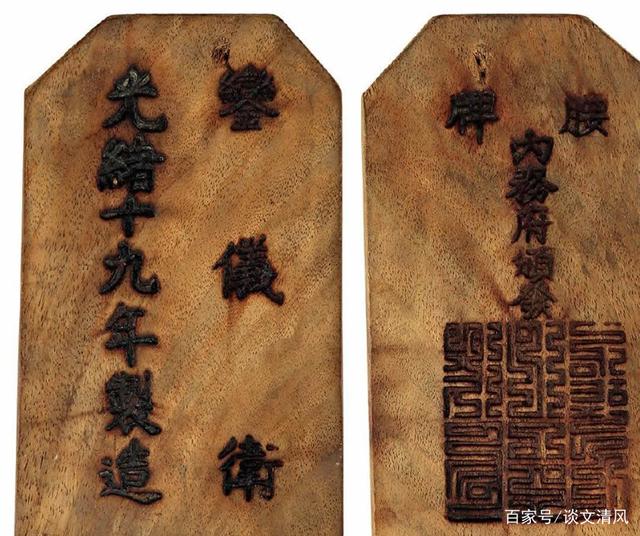 鑾儀衛
光緒十九年製造
腰牌
內務府頒發
百家号/谈文清风